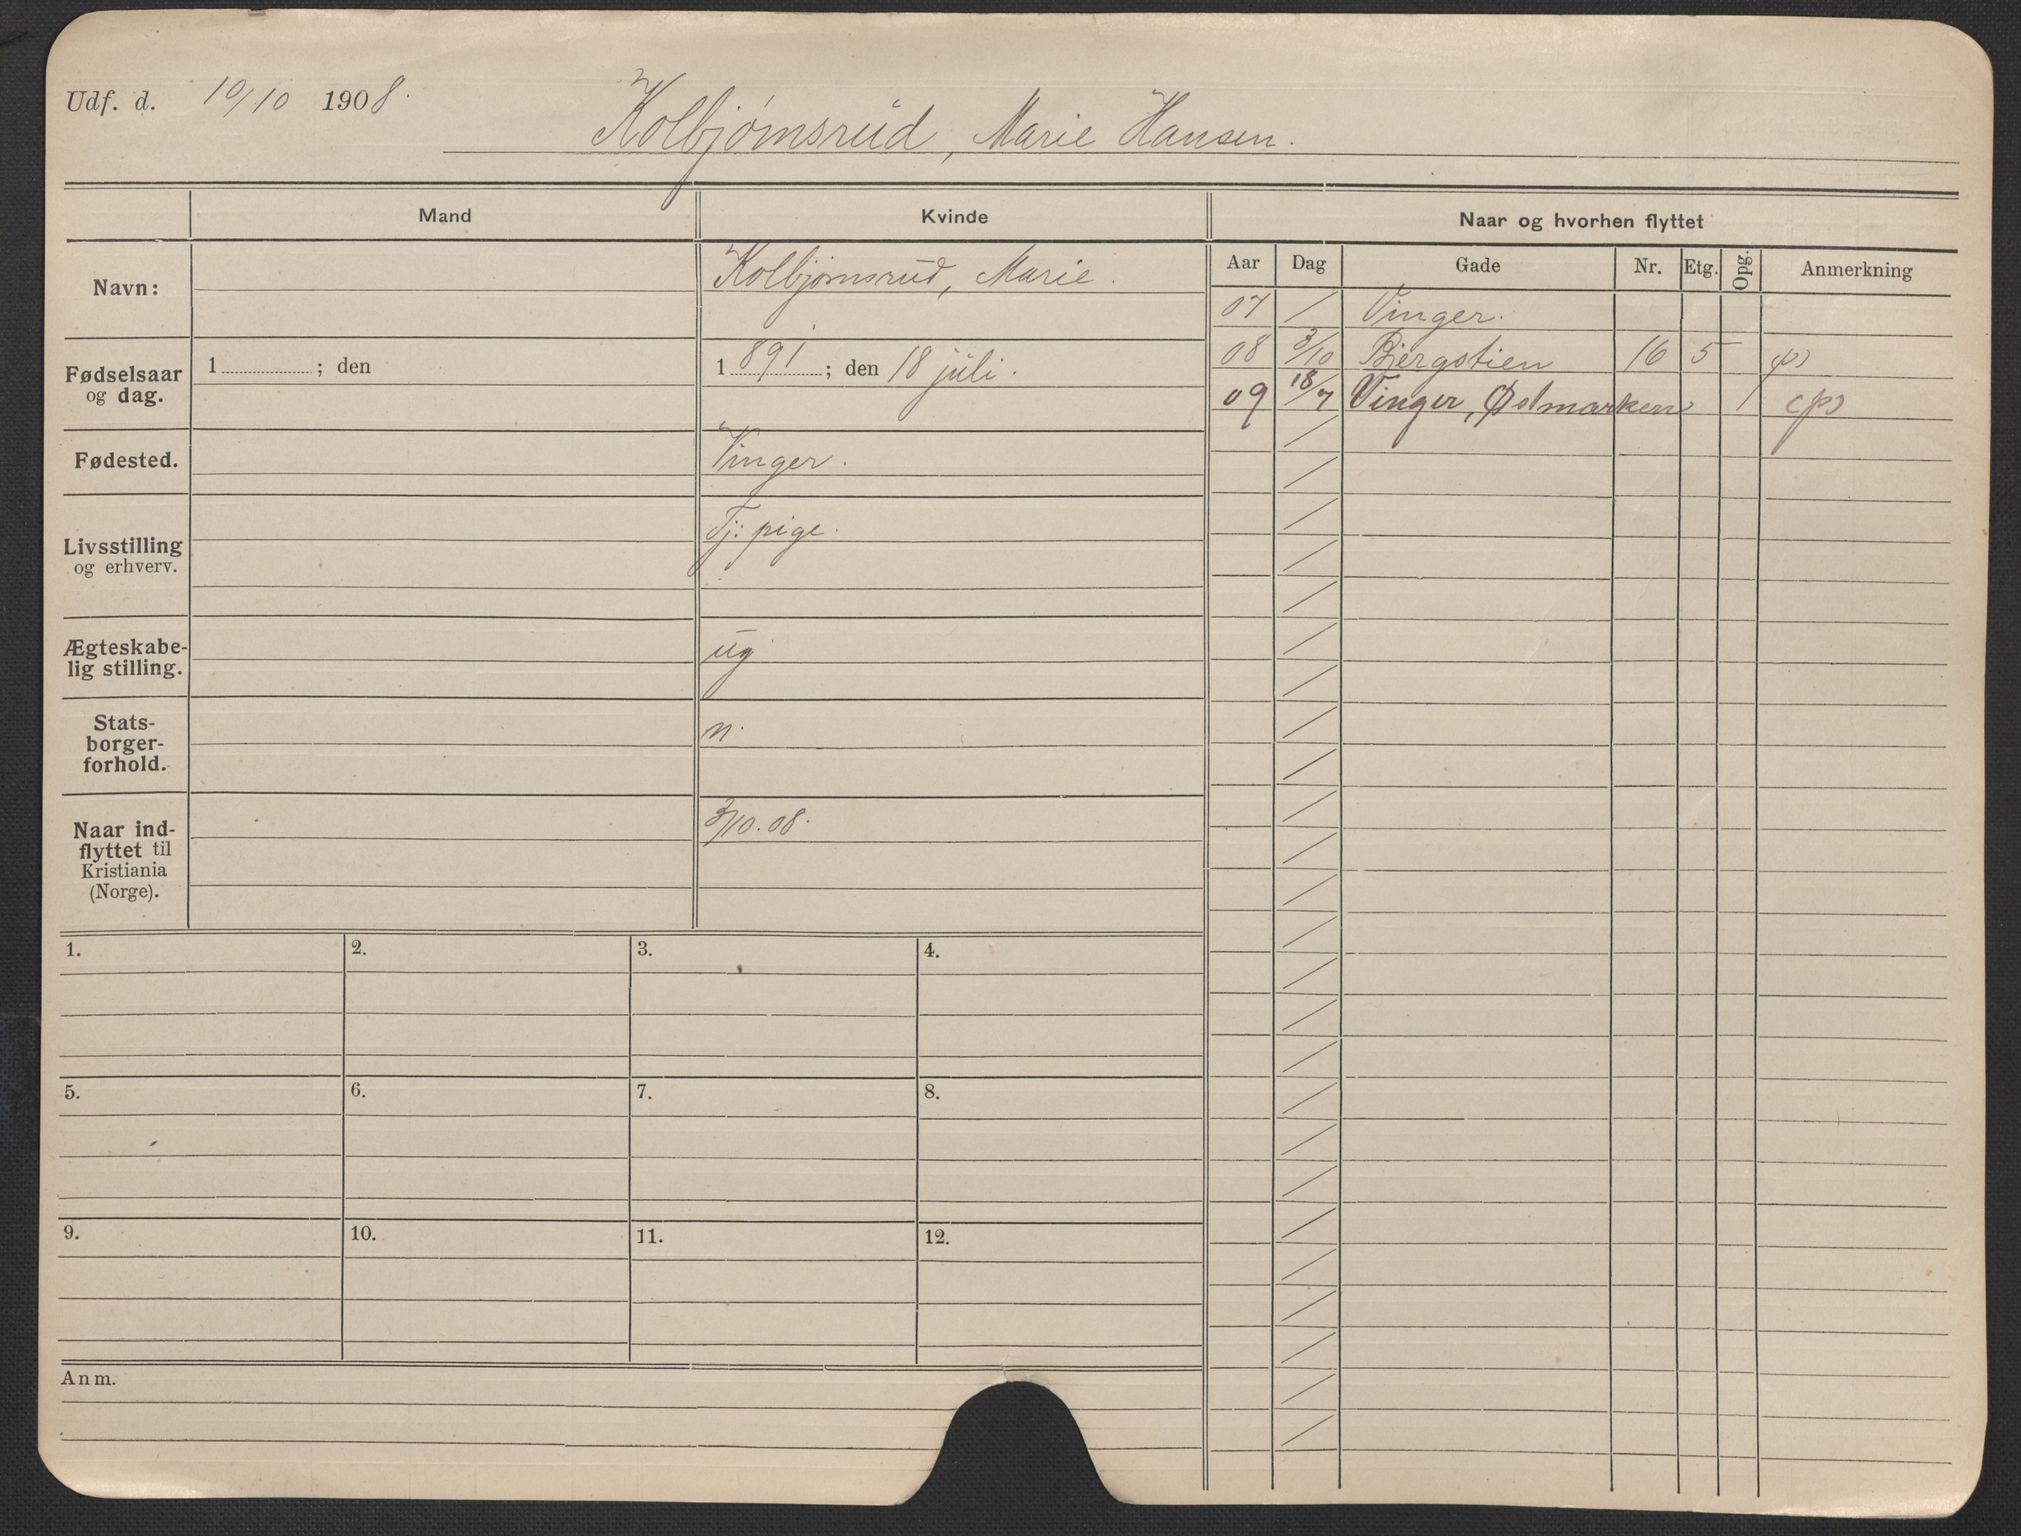 Udf. d. 10/10 1908.
Kolbjørnsrud, Marie Hansen.
Mand
Kvinde
Naar og hvorhen flyttet
Navn:
Kolbjørnsrud, Marie.
Fødselsaar
og dag.
1 ; den
1 891 ; den 18 juli.
Fødested.
Vinger.
Livsstilling
og erhverv.
Tj: pige.
Ægteskabe-
lig stilling.
ug
Stats-
borger-
forhold.
n.
Naar ind-
flyttet til
Kristiania
(Norge).
3/10.08.
Aar Dag Gade Nr. Etg. Opg. Anmerkning
07 / Vinger.
08 3/10 Bergstien 16 5 (p)
09 18/7 Vinger, Østmarken 1 (p)
1. 2. 3. 4.
5. 6. 7. 8.
9. 10. 11. 12.
Anm.